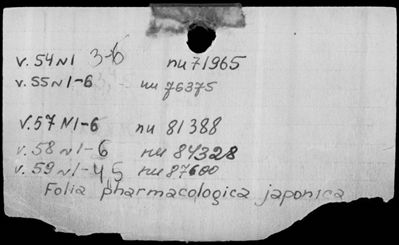 v. 54 N1 3-6 nu 71965
v. 55 N1-6 nu 76375
v. 57 N1-6 nu 81388
v. 58 N1-6 nu 84328
v. 59 N1-4,5 nu 87600
Folia pharmacologica japonica